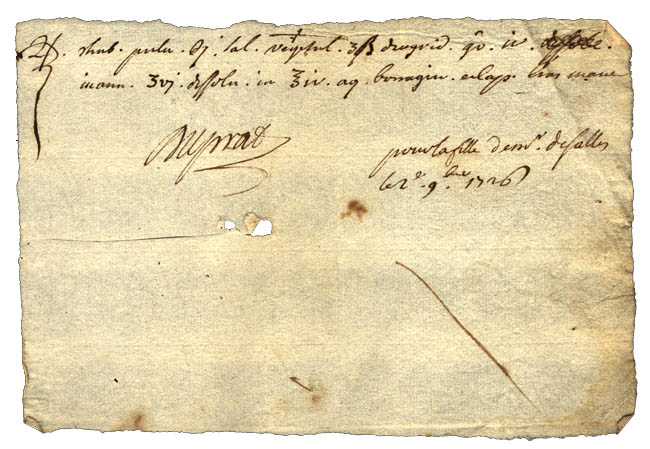 ℞. rhab. pulu. ℈j. sal. veget. ʒß diagrid. gr. iv.
mann. ʒvj. dissolu. in ℥iv. aq. borragin. mane
Duprat
pour la fille de mr. desalles
le 2e. 9bre 1726